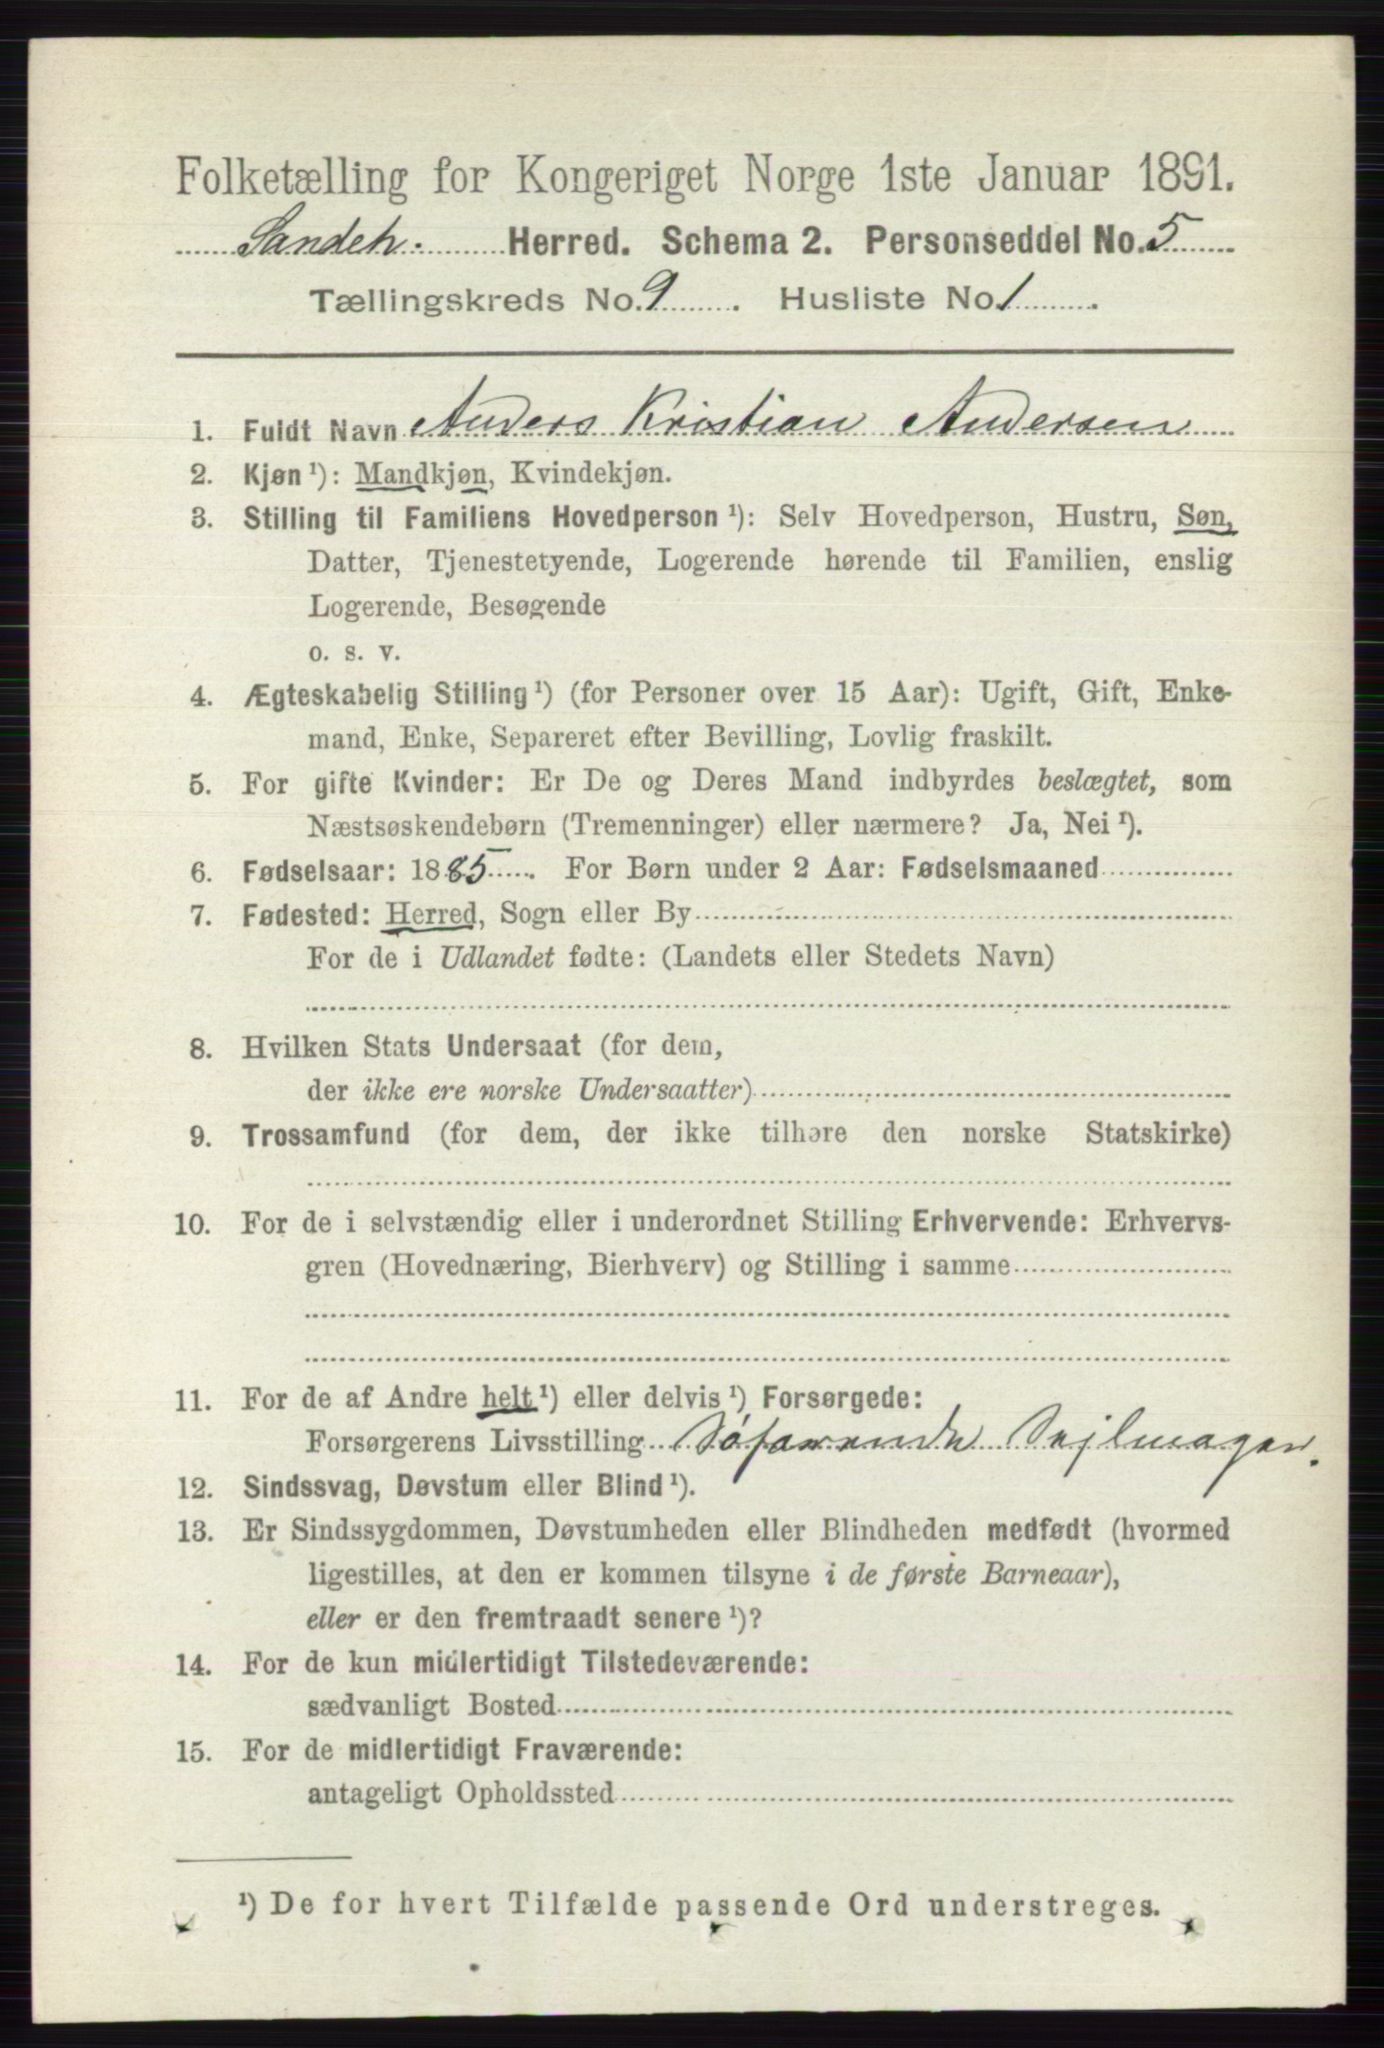 Folketælling for Kongeriget Norge 1ste Januar 1891.
Sandeh. Herred. Schema 2. Personseddel No. 5
Tællingskreds No. 9. Husliste No. 1.
1. Fuldt Navn Anders Kristian Andersen
2. Kjøn ¹): Mandkjøn, Kvindekjøn.
3. Stilling til Familiens Hovedperson ¹): Selv Hovedperson, Hustru, Søn,
Datter, Tjenestetyende, Logerende hørende til Familien, enslig
Logerende, Besøgende
o. s. v.
4. Ægteskabelig Stilling ¹) (for Personer over 15 Aar): Ugift, Gift, Enke-
mand, Enke, Separeret efter Bevilling, Lovlig fraskilt.
5. For gifte Kvinder: Er De og Deres Mand indbyrdes beslægtet, som
Næstsøskendebørn (Tremenninger) eller nærmere? Ja, Nei ¹).
6. Fødselsaar: 1885. For Børn under 2 Aar: Fødselsmaaned
7. Fødested: Herred, Sogn eller By
For de i Udlandet fødte: (Landets eller Stedets Navn)
8. Hvilken Stats Undersaat (for dem,
der ikke ere norske Undersaatter)
9. Trossamfund (for dem, der ikke tilhøre den norske Statskirke)
10. For de i selvstændig eller i underordnet Stilling Erhvervende: Erhvervs-
gren (Hovednæring, Bierhverv) og Stilling i samme
11. For de af Andre helt ¹) eller delvis ¹) Forsørgede:
Forsørgerens Livsstilling Søfarende Sejlmager.
12. Sindssvag, Døvstum eller Blind ¹).
13. Er Sindssygdommen, Døvstumheden eller Blindheden medfødt (hvormed
ligestilles, at den er kommen tilsyne i de første Barneaar),
eller er den fremtraadt senere ¹)?
14. For de kun midlertidigt Tilstedeværende:
sædvanligt Bosted
15. For de midlertidigt Fraværende:
antageligt Opholdssted
¹) De for hvert Tilfælde passende Ord understreges.